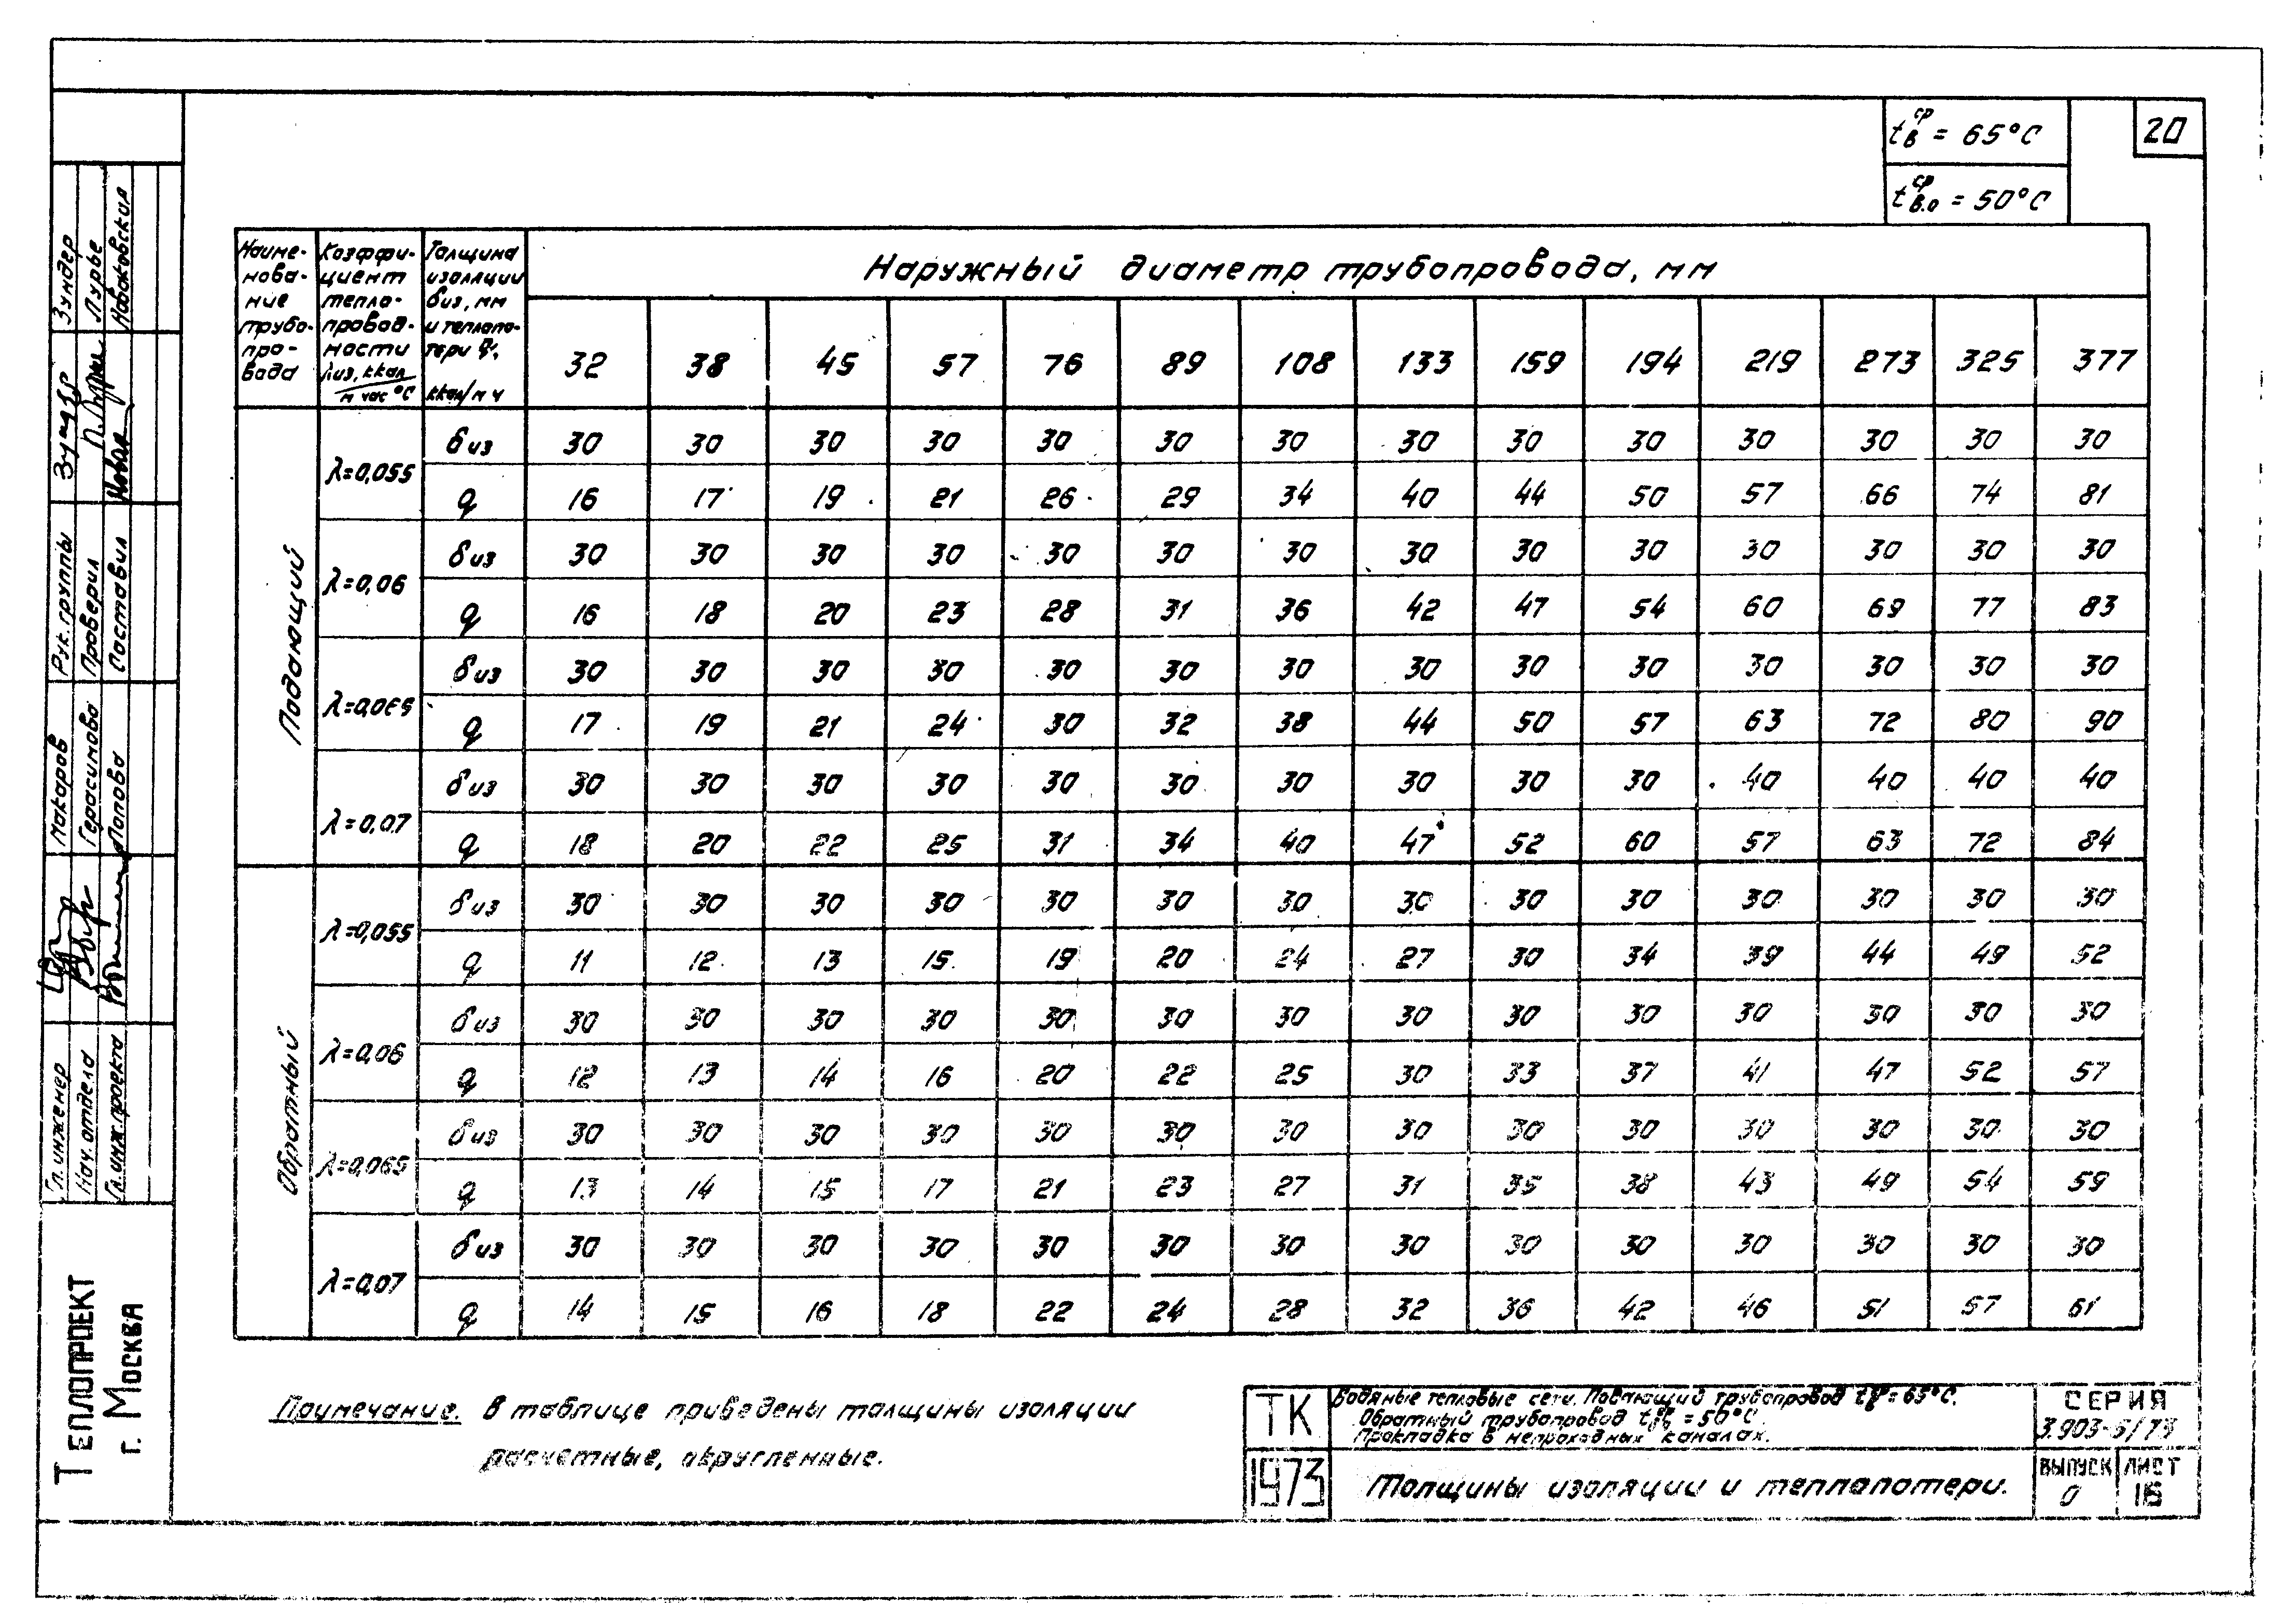 tв ср = 65°С
20
tв.о ср = 50°С
Наиме-
нова-
ние
трубо-
про-
вода
Коэффи-
циент
тепло-
провод-
ности
λиз, ккал
м час °С
Толщина
изоляции
δиз, мм
и теплопо-
тери q,
ккал/м ч
Наружный диаметр трубопровода, мм
32 38 45 57 76 89 108 133 159 194 219 273 325 377
Подающий
λ=0,055
δиз 30 30 30 30 30 30 30 30 30 30 30 30 30 30
q 16 17 19 21 26 29 34 40 44 50 57 66 74 81
λ=0,06
δиз 30 30 30 30 30 30 30 30 30 30 30 30 30 30
q 16 18 20 23 28 31 36 42 47 54 60 69 77 83
λ=0,065
δиз 30 30 30 30 30 30 30 30 30 30 30 30 30 30
q 17 19 21 24 30 32 38 44 50 57 63 72 80 90
λ=0,07
δиз 30 30 30 30 30 30 30 30 30 30 40 40 40 40
q 18 20 22 25 31 34 40 47 52 60 57 63 72 84
Обратный
λ=0,055
δиз 30 30 30 30 30 30 30 30 30 30 30 30 30 30
q 11 12 13 15 19 20 24 27 30 34 39 44 49 52
λ=0,06
δиз 30 30 30 30 30 30 30 30 30 30 30 30 30 30
q 12 13 14 16 20 22 25 30 33 37 41 47 52 57
λ=0,065
δиз 30 30 30 30 30 30 30 30 30 30 30 30 30 30
q 13 14 15 17 21 23 27 31 35 38 43 49 54 59
λ=0,07
δиз 30 30 30 30 30 30 30 30 30 30 30 30 30 30
q 14 15 16 18 22 24 28 32 36 42 46 51 57 61
Примечание. В таблице приведены толщины изоляции
расчетные, округленные.
ТК
1973
Водяные тепловые сети. Подающий трубопровод tв ср = 65°С.
Обратный трубопровод tв.о ср = 50°С.
Прокладка в непроходных каналах.
Толщины изоляции и теплопотери.
СЕРИЯ
3.903-5/73
ВЫПУСК ЛИСТ
0 16
Зундер
Лурье
Новаковская
Рук. группы
Проверил
Составил
Макаров
Герасимова
Попова
Гл. инженер
Нач. отдела
Гл. инж. проекта
ТЕПЛОПРОЕКТ
г. МОСКВА